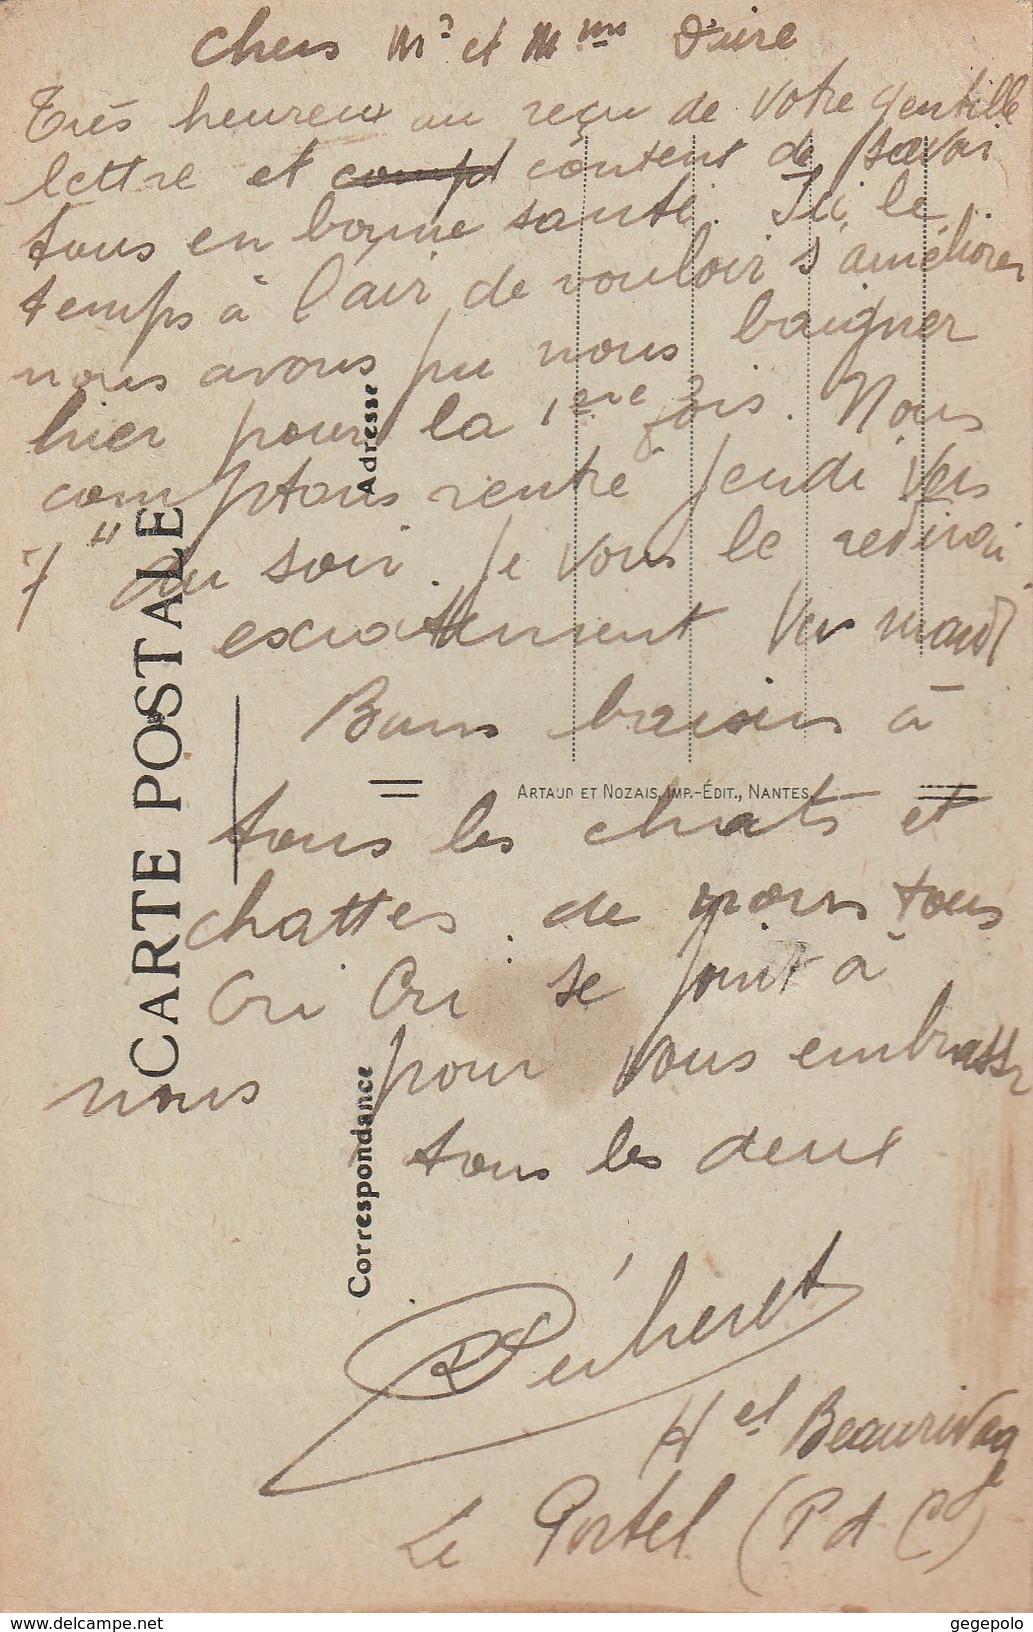 Chers Mr et Mme Daire
Très heureux au reçu de votre gentille
lettre et compt content de savoir
tous en bonne santé. Ici, le
temps à l'air de vouloir s'améliorer
nous avons pu nous baigner
hier pour la 1ere fois. Nous
comptons rentré jeudi vers
7" du soir. Je vous le redirai
exactement Ver mardi
Bons baisers à
tous les chats et
chattes de nous tous
Cri Cri se joint à
nous pour vous embrasser
tous les deux
Hel Beaurivage
Le Portel (P d C)
CARTE POSTALE
Adresse
Correspondance
ARTAUD ET NOZAIS, IMP.-ÉDIT., NANTES
www.delcampe.net
gegepolo